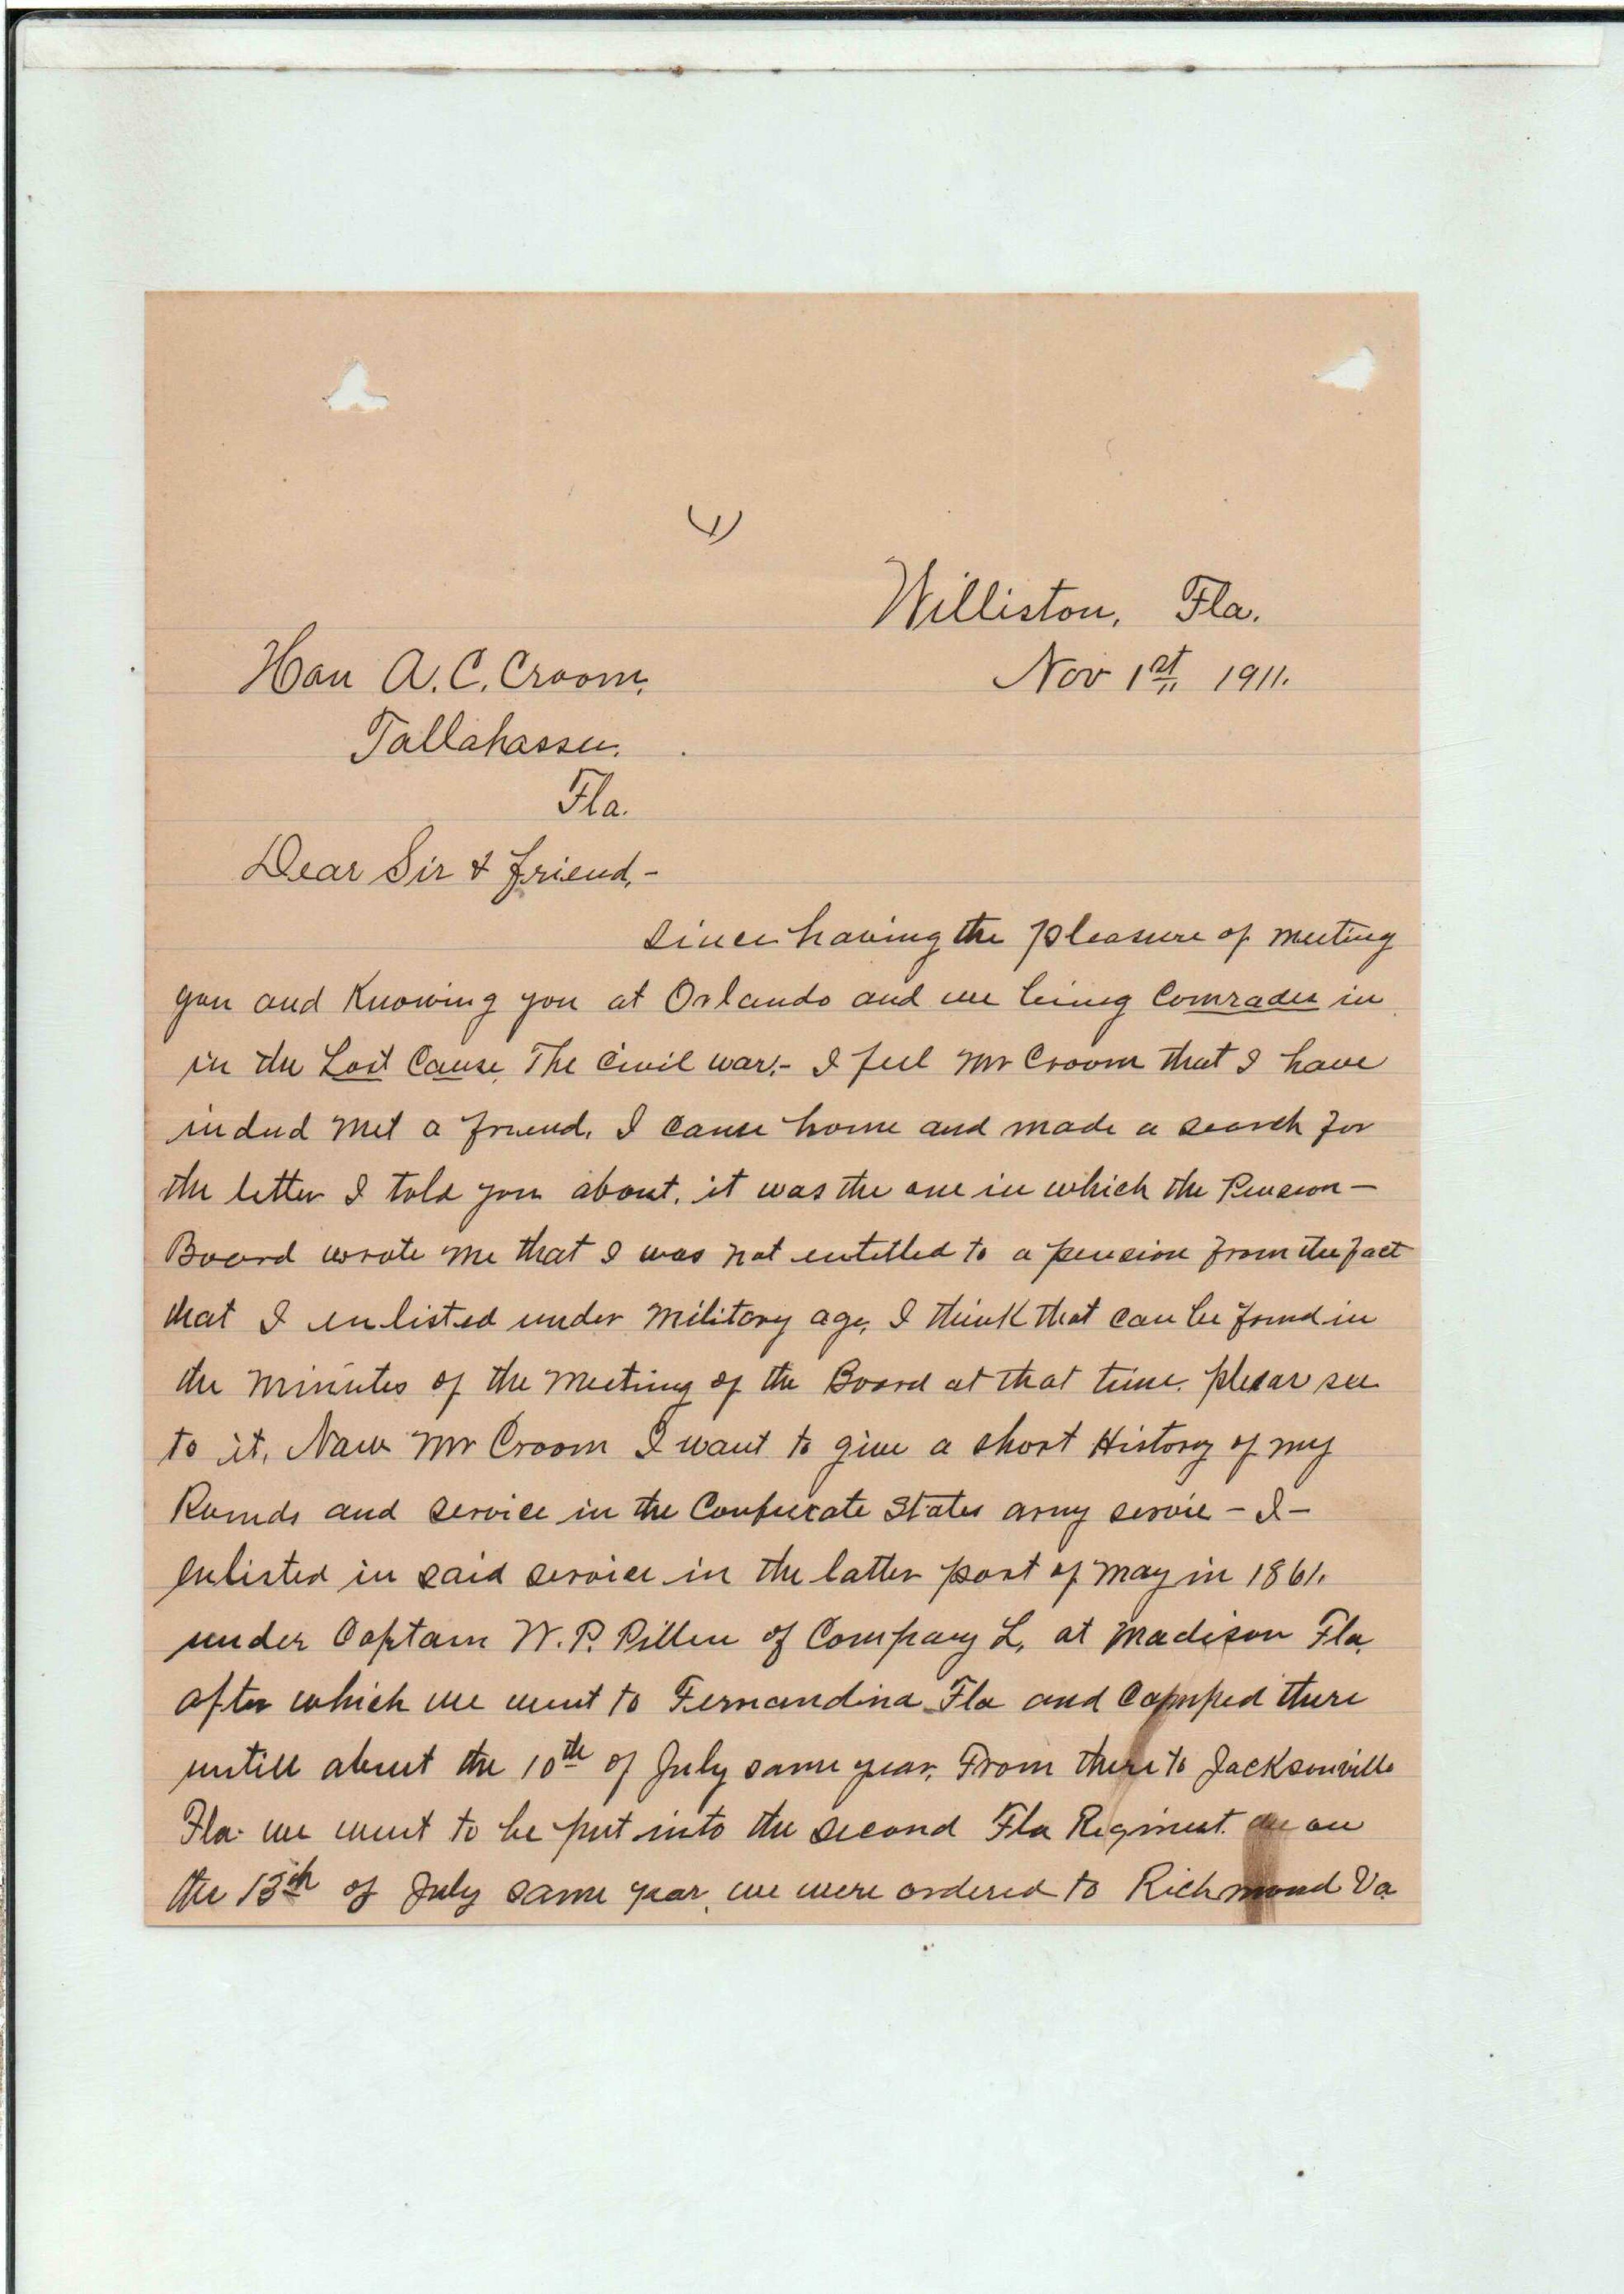 (1)
Williston, Fla.
Nov 1st 1911.
Hon A. C. Croom,
Tallahassee,
Fla.
Dear Sir & friend,-
Since having the pleasure of meeting
you and Knowing you at Orlando and we being Comrades in
in the Lost Cause, The Civil war,- I feel Mr Croom that I have
indeed met a friend, I came home and made a search for
the letter I told you about, it was the one in which the Pension -
Board wrote me that I was not entitled to a pension from the fact
that I enlisted under military age, I think that can be found in
the minutes of the meeting of the Board at that time. please see
to it, Now Mr Croom I want to give a short History of my
Rounds and service in the Confederate States army service - I -
enlisted in said service in the latter part of May in 1861.
under Captain W. P. Pillen of Company L, at Madison Fla,
after which we went to Fernandina Fla and Campped there
untill about the 10th of July same year, From there to Jacksonville
Fla. we went to be put into the second Fla Regiment. on
the 13th of July same year, we were ordered to Richmond Va